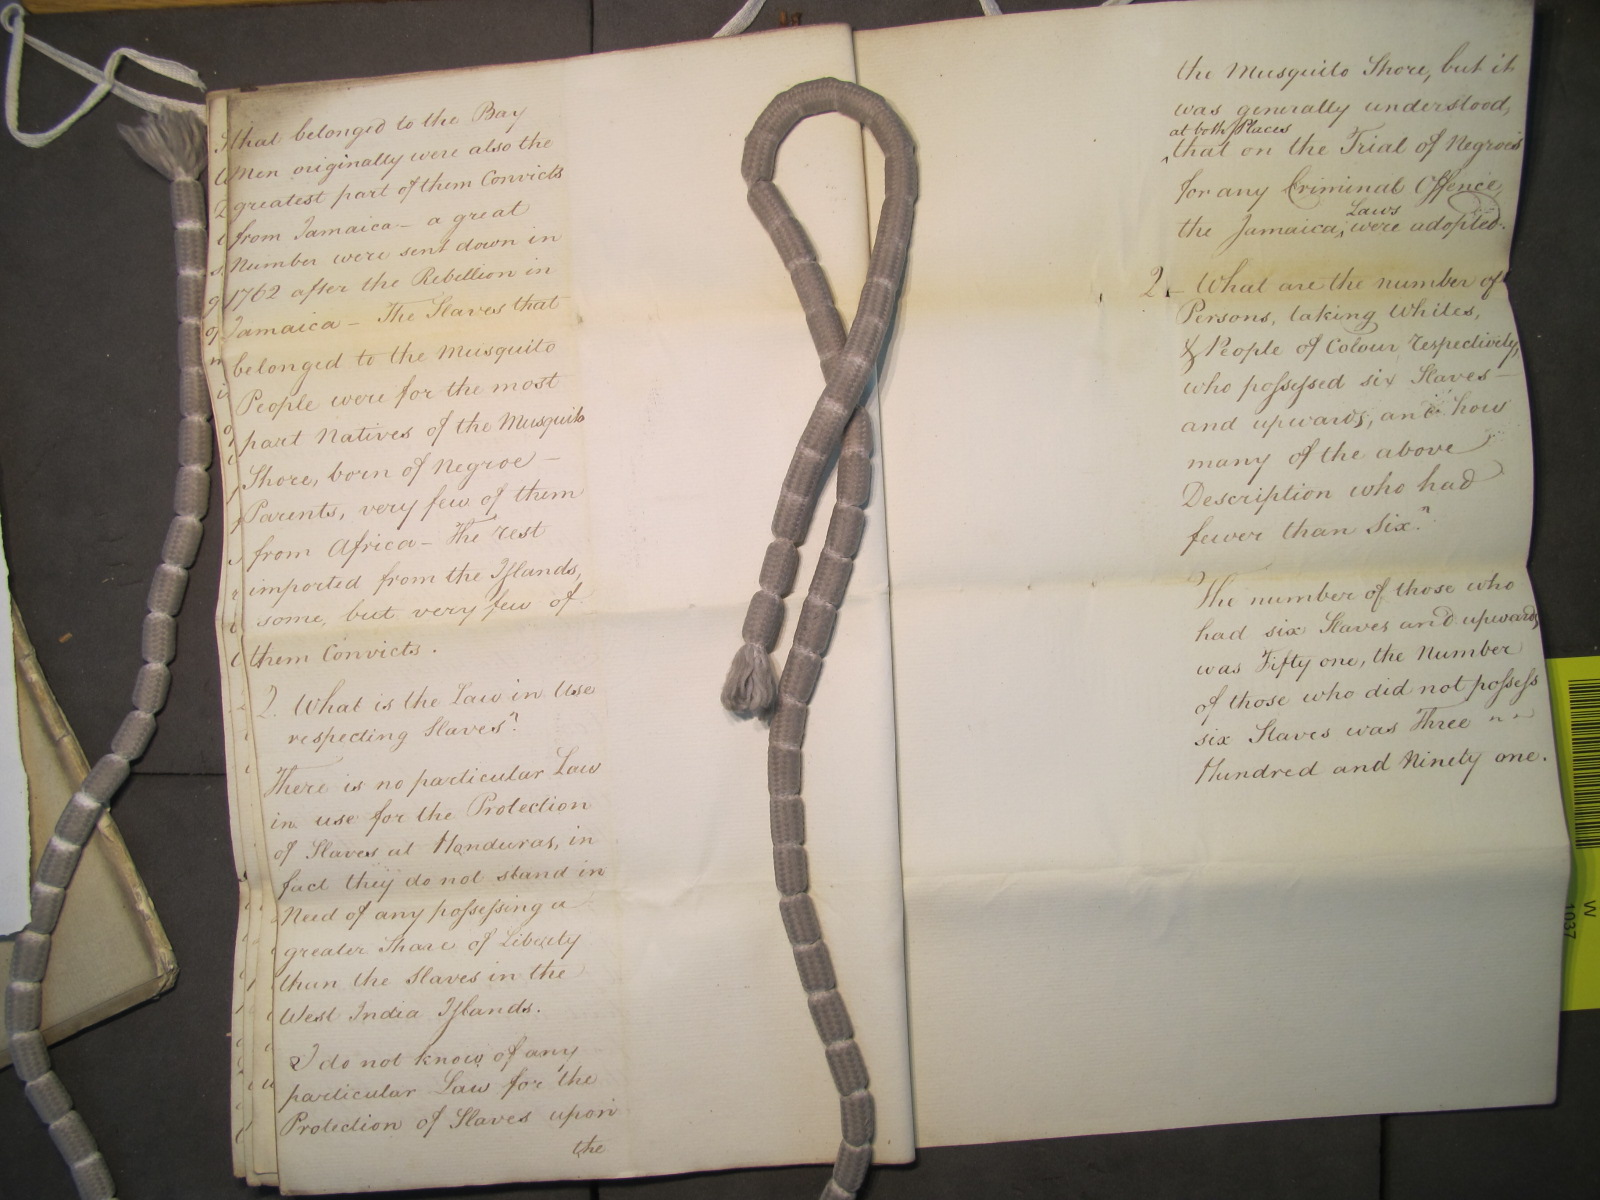 that belonged to the Bay
Men originally were also the
greatest part of them Convicts
from Jamaica – a great
Number were sent down in
1762 after the Rebellion in
Jamaica – The Slaves that
belonged to the Musquito
People were for the most
part Natives of the Musquito
Shore, born of Negroe –
Parents, very few of them
from Africa – The rest
imported from the Islands,
some, but very few of
them Convicts.
2. What is the Law in Use
respecting Slaves"?
There is no particular Law
in use for the Protection
of Slaves at Honduras, in
fact they do not stand in
Need of any possessing a
greater Share of Liberty
than the Slaves in the
West India Islands.
I do not know of any
particular Law for the
Protection of Slaves upon
the
the Musquito Shore, but it
was generally understood,
at both Places
that on the Trial of Negroes
for any Criminal Offence,
Laws
the Jamaica, were adopted.
2 – What are the number of
Persons, taking Whites,
& People of Colour respectively,
who possessed six Slaves –
and upwards, and how
many of the above
Description who had
fewer than Six"
The number of those who
had six Slaves and upwards,
was Fifty one, the Number
of those who did not possess
six Slaves was Three
Hundred and Ninety one.
W
1037